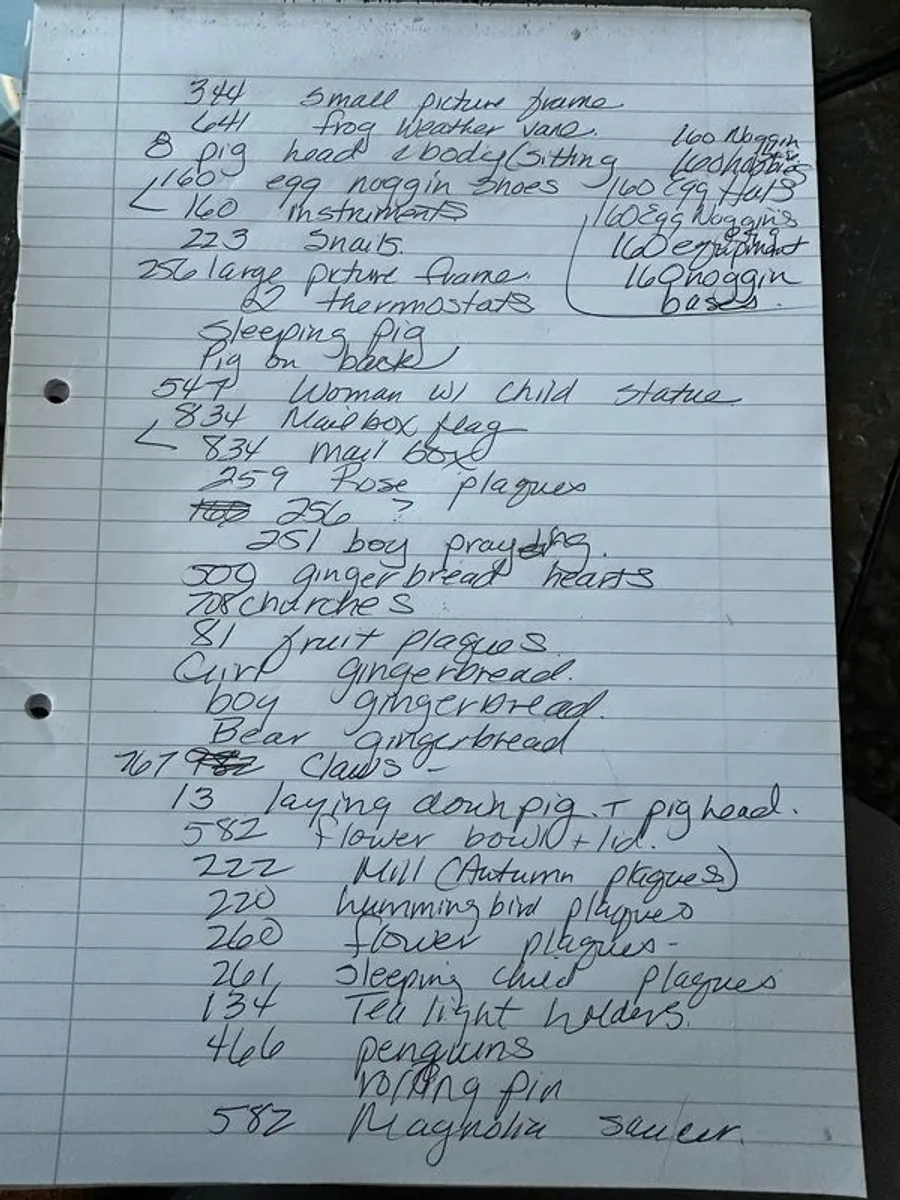 344 Small picture frame.
641 frog weather vane.
8 pig head & body (Sitting
160 egg noggin shoes
160 instruments
223 Snails.
256 large picture frame.
62 thermostats
Sleeping Pig
Pig on back
547 Woman w/ Child Statue
834 Mailbox flag
834 mail box
259 Rose plaques
256 ?
251 boy praying.
509 gingerbread hearts
708 churches
81 fruit plaques
Girl gingerbread.
boy gingerbread.
Bear gingerbread
767 Claws -
13 laying down pig. + pig head.
582 flower bowl + lid.
222 Mill (Autumn plaques)
220 hummingbird plaques
260 flower plaques -
261 Sleeping child plaques
134 Tea light holders.
466 penguins
rolling pin
582 Magnolia saucer.
160 Noggin
160 hobbies
160 Egg Hats
160 Egg Noggins
160 equipment
160 noggin
bases.